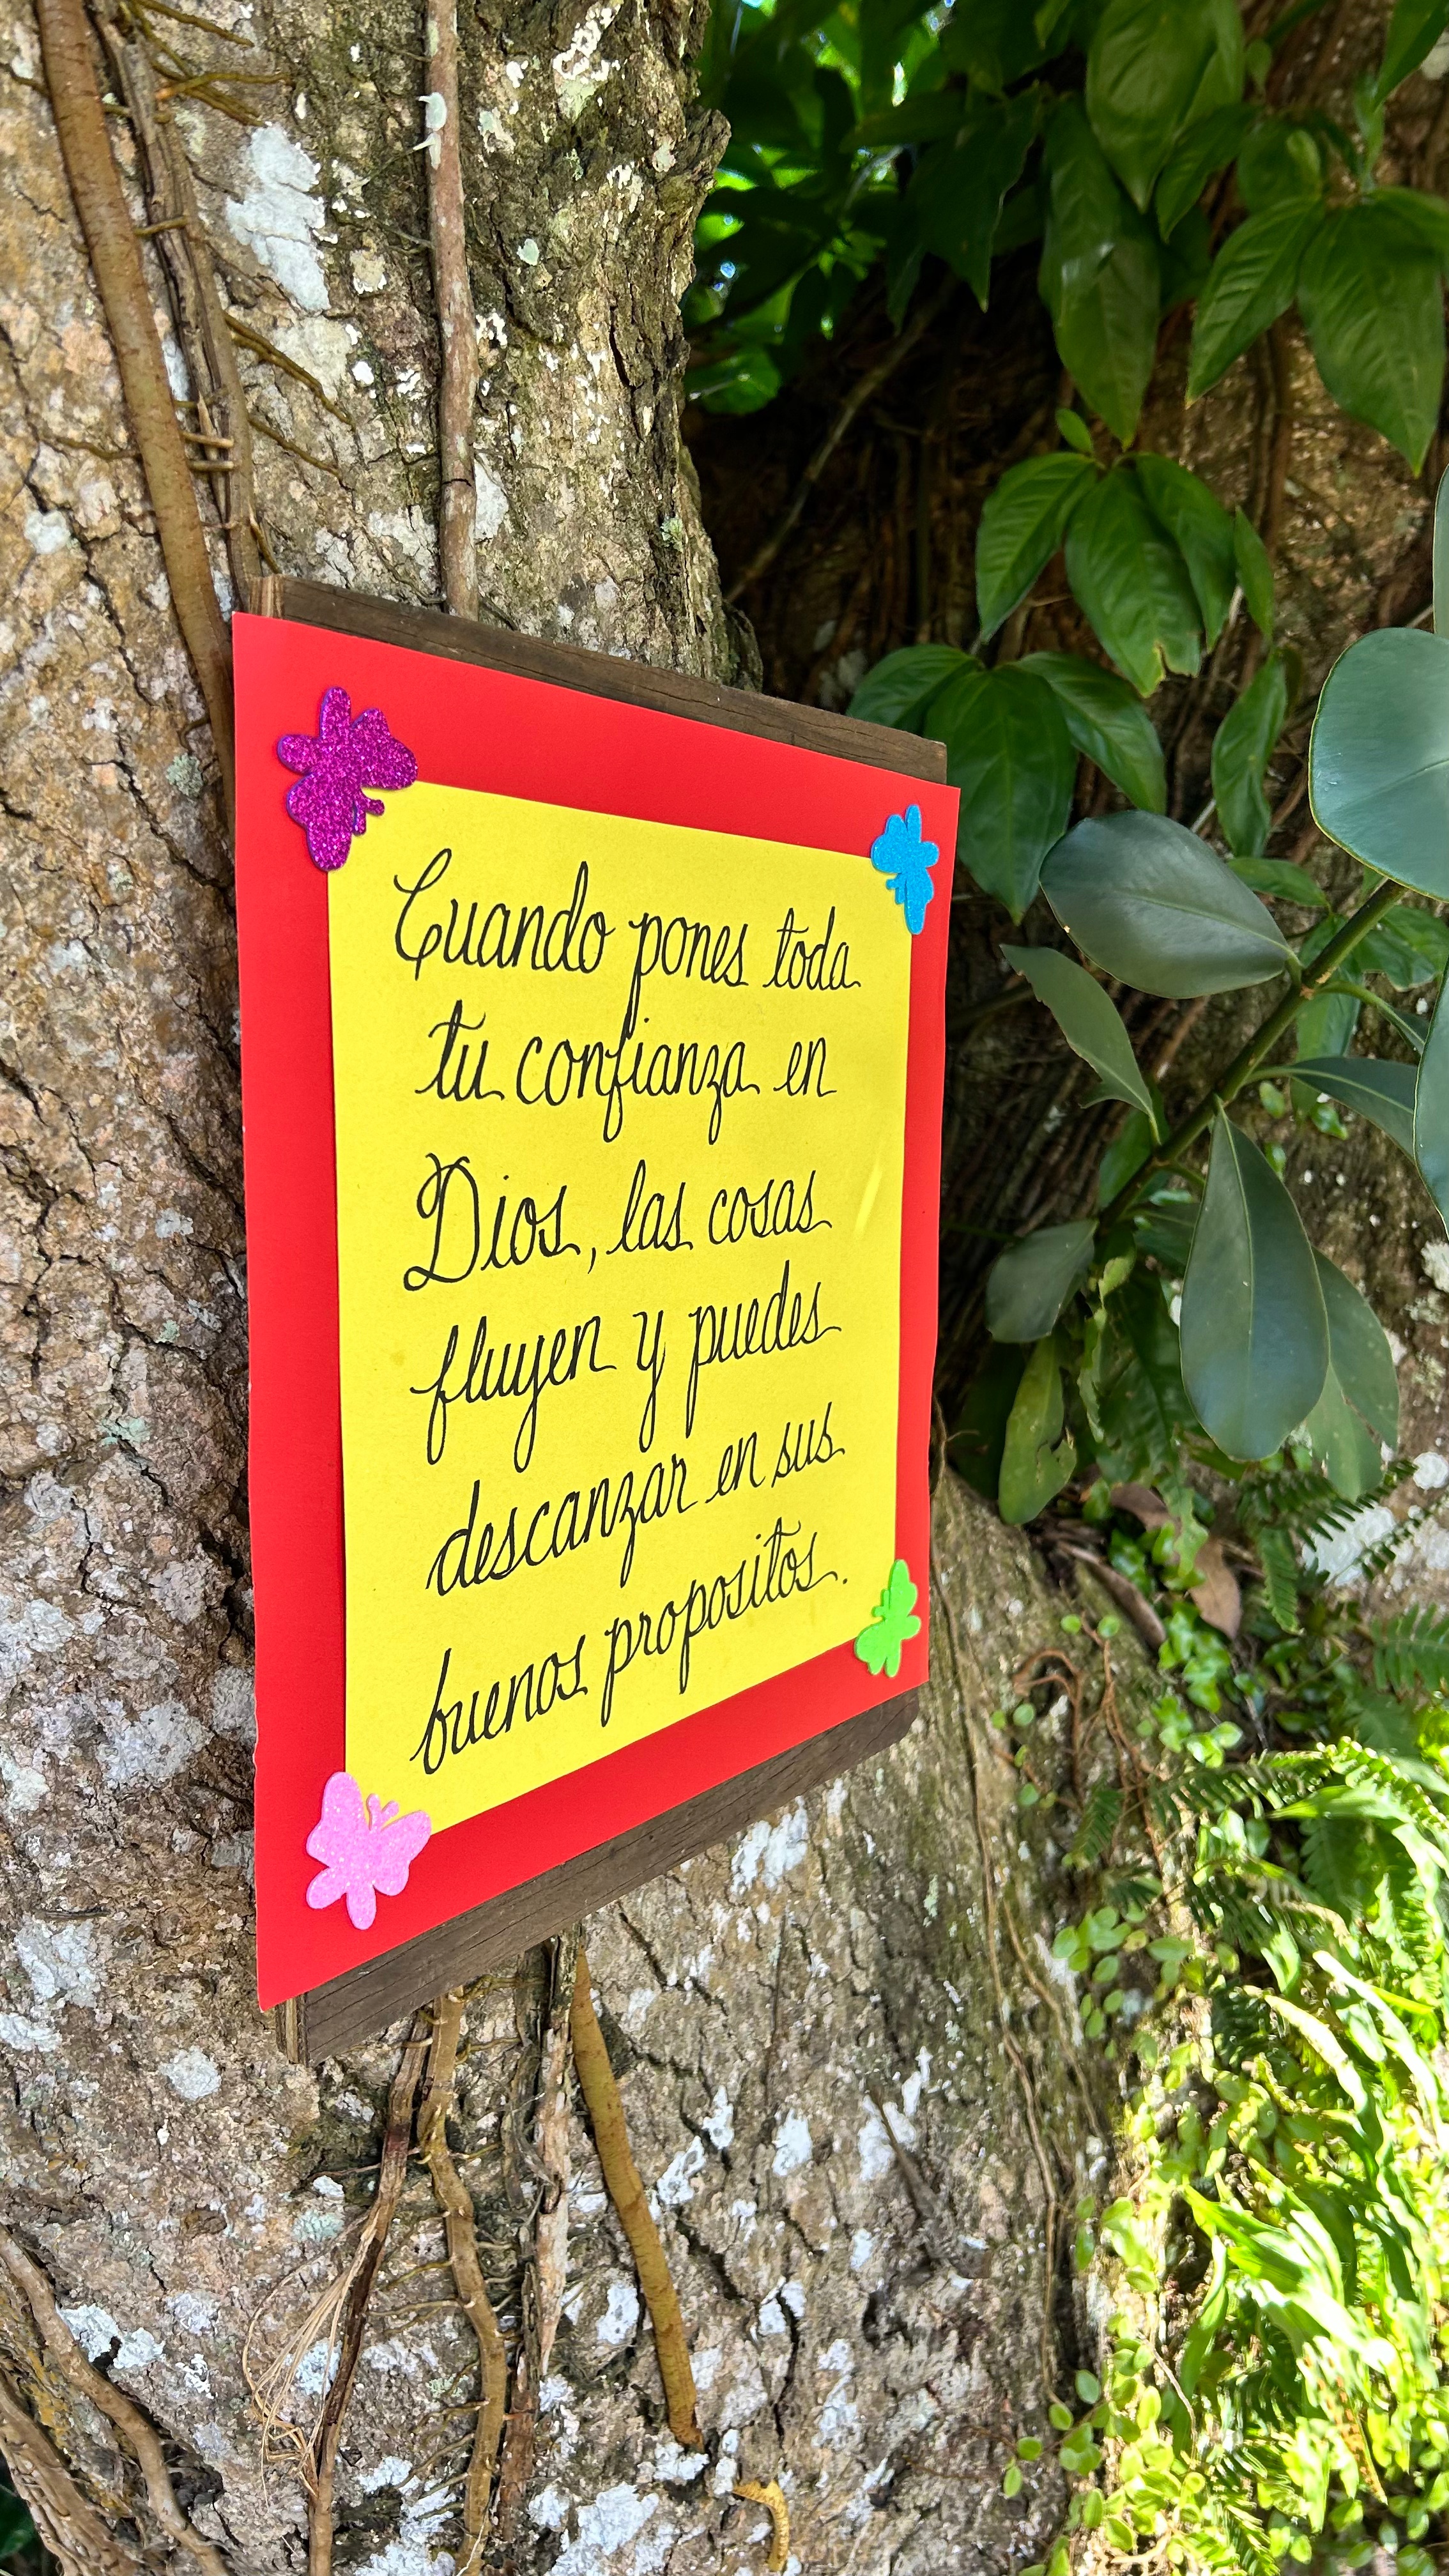 Cuando pones toda
tu confianza en
Dios, las cosas
fluyen y puedes
descanzar en sus
buenos propositos.